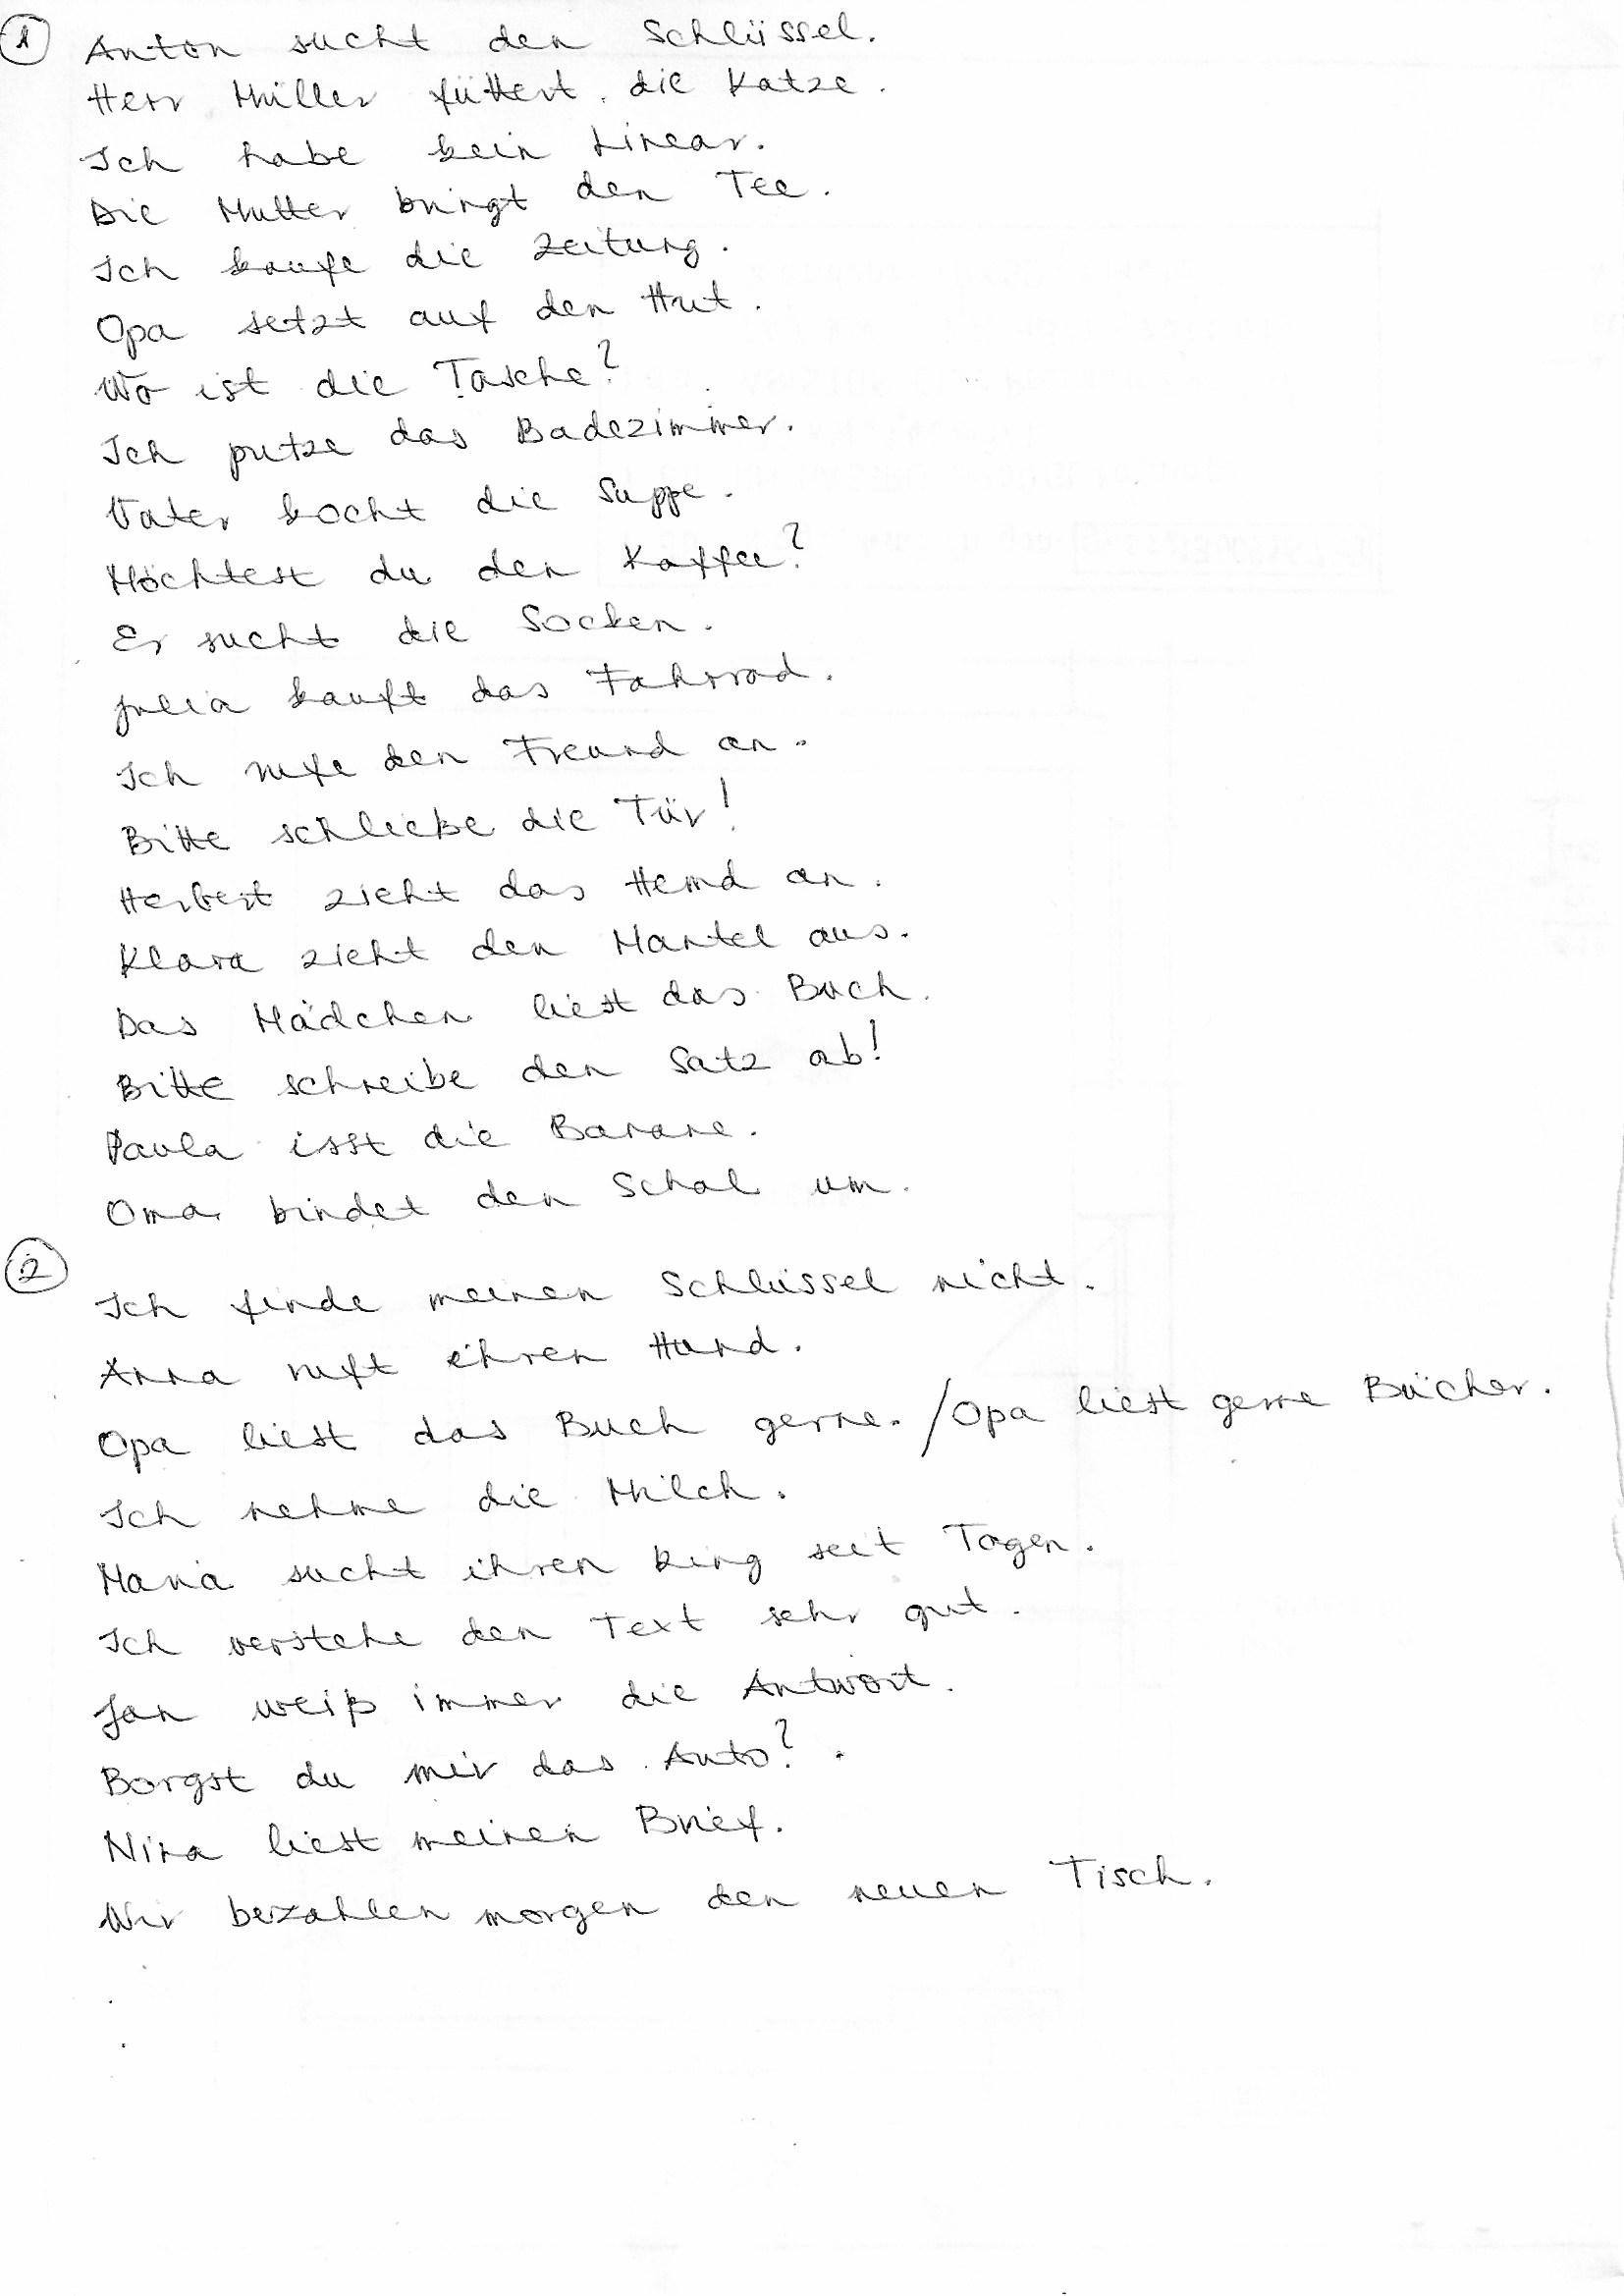 1
Anton sucht den Schlüssel.
Herr Müller füttert die Katze.
Ich habe kein Linear.
Die Mutter bringt den Tee.
Ich kaufe die Zeitung.
Opa setzt auf den Hut.
Wo ist die Tasche?
Ich putze das Badezimmer.
Vater kocht die Suppe.
Möchtest du den Kaffee?
Er sucht die Socken.
Julia kauft das Fahrrad.
Ich rufe den Freund an.
Bitte schließe die Tür!
Herbert zieht das Hemd an.
Klara zieht den Mantel aus.
Das Mädchen liest das Buch.
Bitte schreibe den Satz ab!
Paula isst die Banane.
Oma bindet den Schal um.
2
Ich finde meinen Schlüssel nicht.
Anna ruft ihren Hund.
Opa liest das Buch gerne. / Opa liest gerne Bücher.
Ich nehme die Milch.
Maria sucht ihren Ring seit Tagen.
Ich verstehe den Text sehr gut.
Jan weiß immer die Antwort.
Borgst du mir das Auto?
Nina liest meinen Brief.
Wir bezahlen morgen den neuen Tisch.